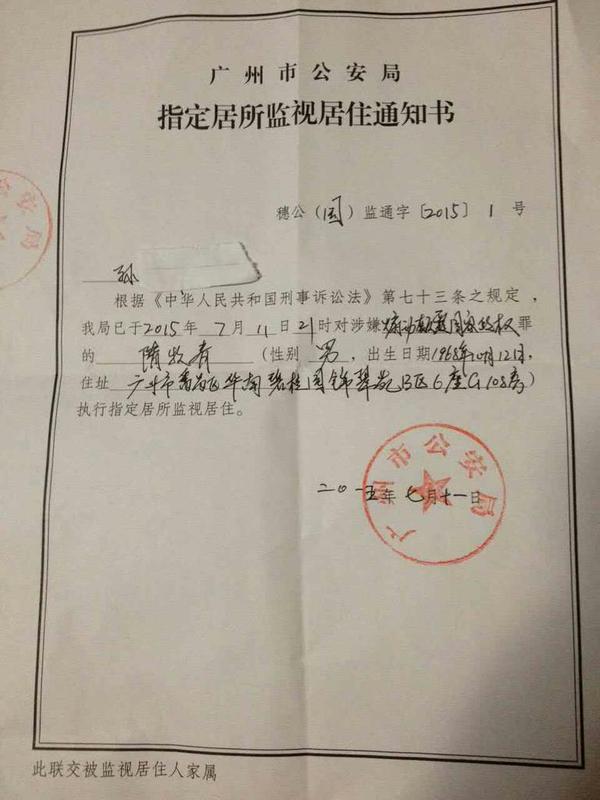 广州市公安局
指定居所监视居住通知书
穗公(国)监通字〔2015〕1号
孙
根据《中华人民共和国刑事诉讼法》第七十三条之规定,
我局已于2015年7月11日21时对涉嫌煽动颠覆国家政权罪
的隋牧青(性别男,出生日期1968年10月12日,
住址广州市番禺区华南碧桂园翠苑B区6座G108房)
执行指定居所监视居住。
二〇一五年七月十一日
广州市公安局
此联交被监视居住人家属